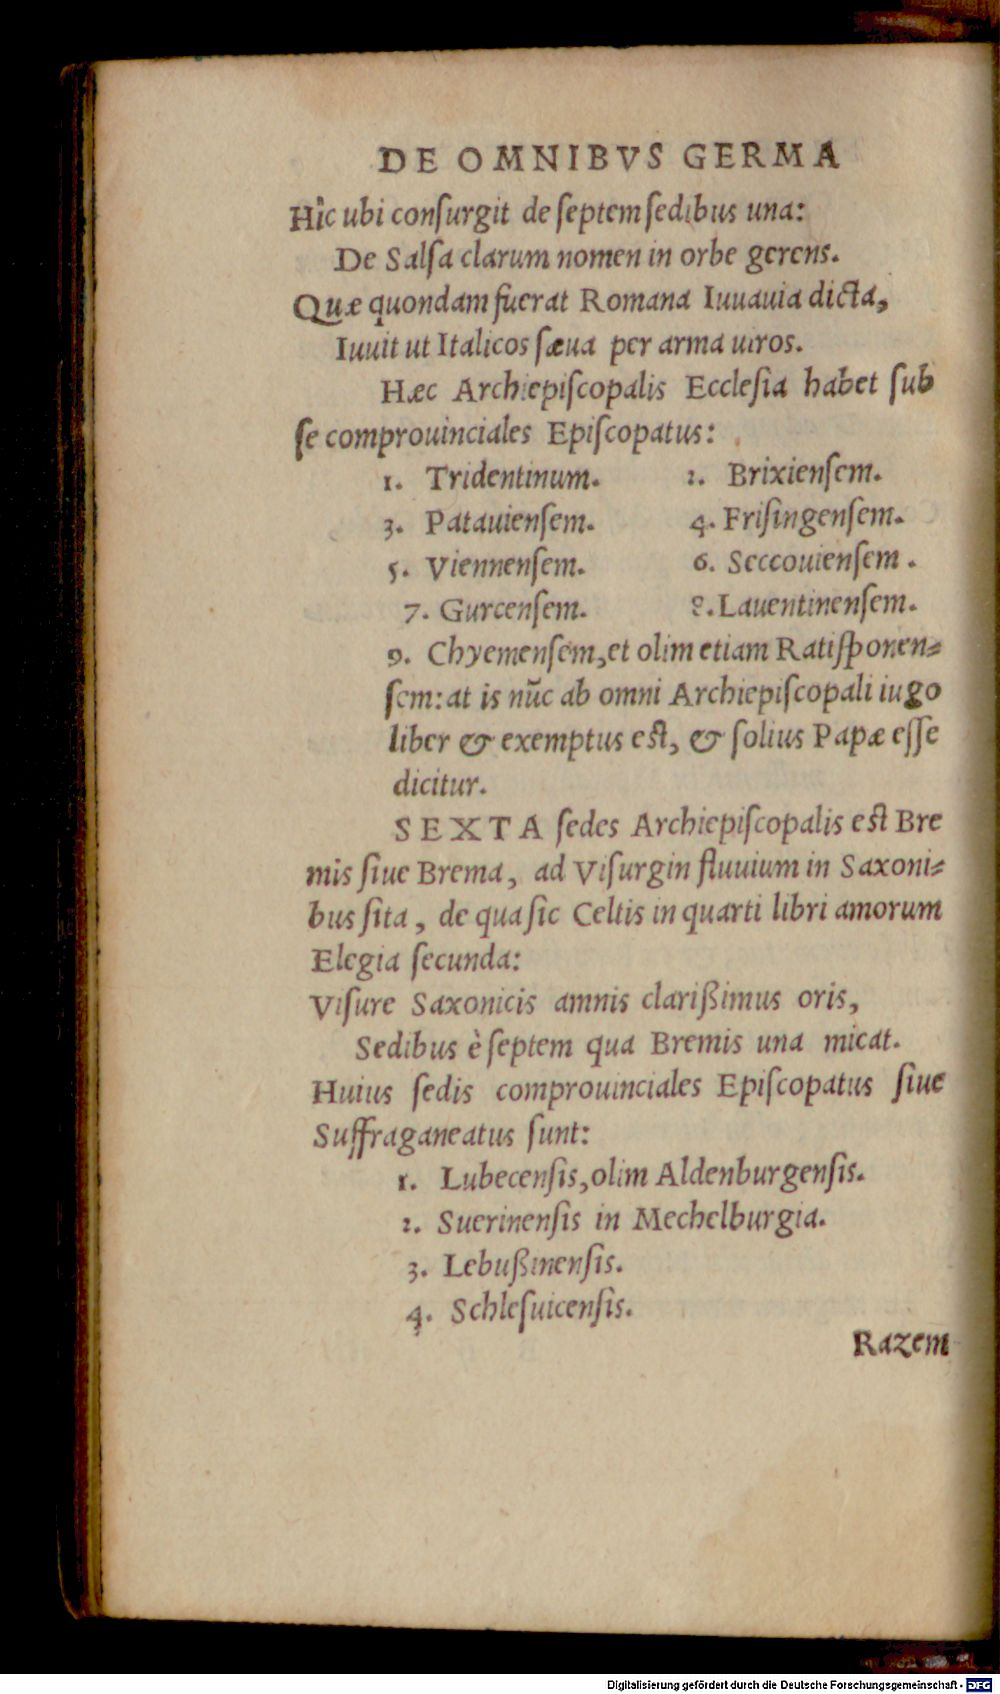 DE OMNIBVS GERMA
Hîc ubi conſurgit de ſeptem ſedibus una:
De Salſa clarum nomen in orbe gerens.
Quæ quondam fuerat Romana Iuuauia dicta,
Iuuit ut Italicos ſæua per arma uiros.
Hæc Archiepiſcopalis Eccleſia habet ſub
ſe comprouinciales Epiſcopatus:
1. Tridentinum. 2. Brixienſem.
3. Patauienſem. 4. Friſingenſem.
5. Viennenſem. 6. Seccouienſem.
7. Gurcenſem. 8. Lauentinenſem.
9. Chyemenſem, et olim etiam Ratiſponen-
ſem: at is nūc ab omni Archiepiſcopali iugo
liber & exemptus eſt, & ſolius Papæ eſſe
dicitur.
SEXTA ſedes Archiepiſcopalis eſt Bre
mis ſiue Brema, ad Viſurgin fluuium in Saxoni-
bus ſita, de qua ſic Celtis in quarti libri amorum
Elegia ſecunda:
Viſure Saxonicis amnis clarißimus oris,
Sedibus è ſeptem qua Bremis una micat.
Huius ſedis comprouinciales Epiſcopatus ſiue
Suffraganeatus ſunt:
1. Lubecenſis, olim Aldenburgenſis.
2. Suerinenſis in Mechelburgia.
3. Lebußinenſis.
4. Schleſuicenſis.
Razem
Digitalisierung gefördert durch die Deutsche Forschungsgemeinschaft - DFG